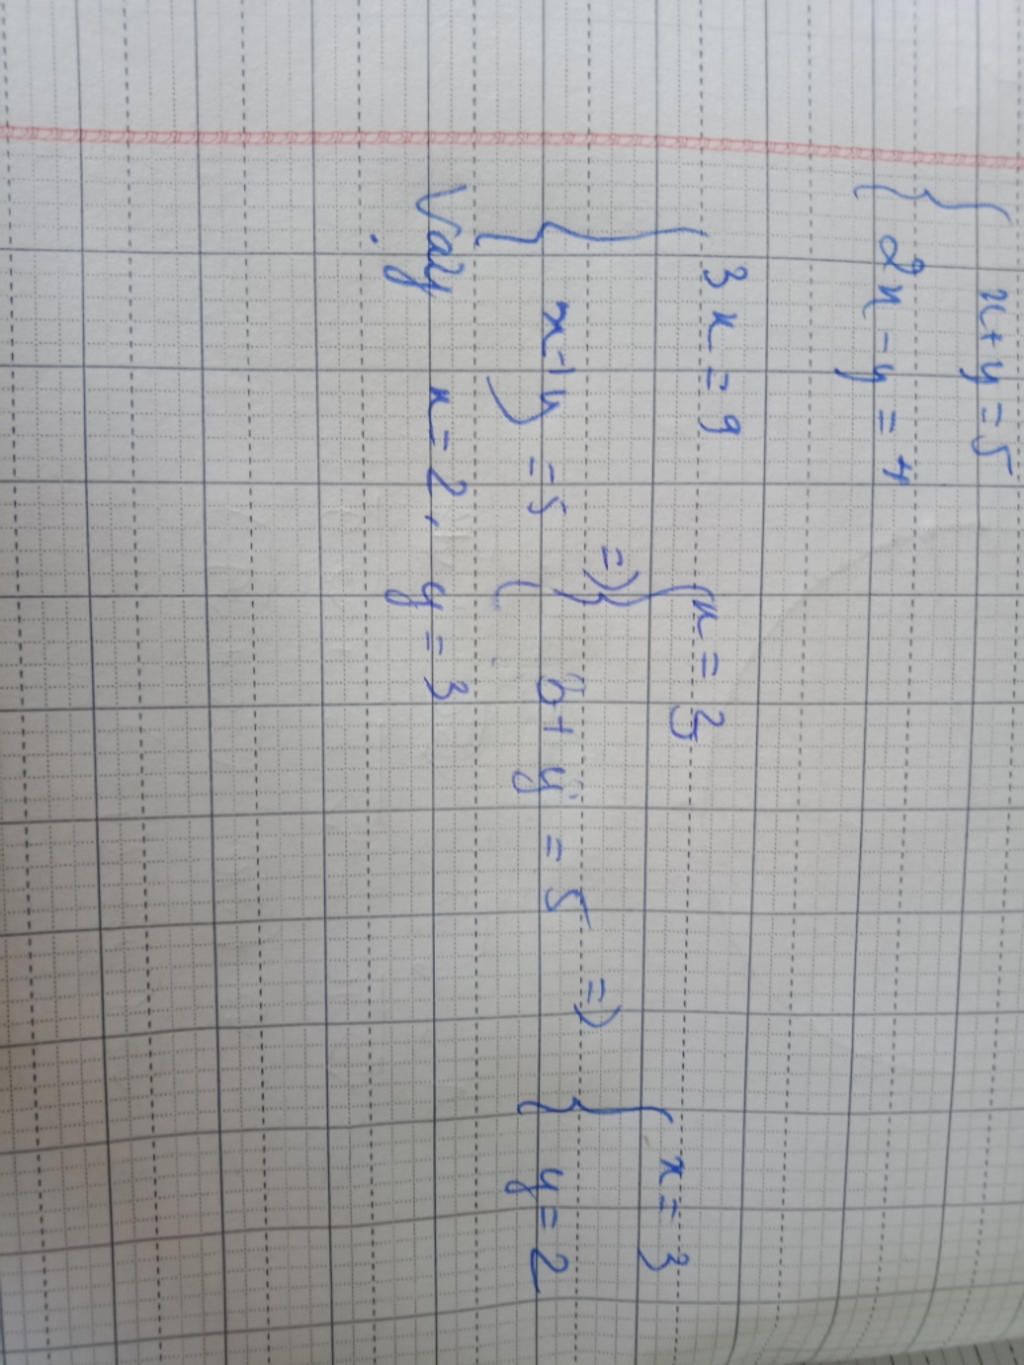 x + y = 5
2x - y = 4
3x = 9
x + y = 5
=> x = 3
6 + y = 5
=> x = 3
y = 2
Vậy x = 2, y = 3